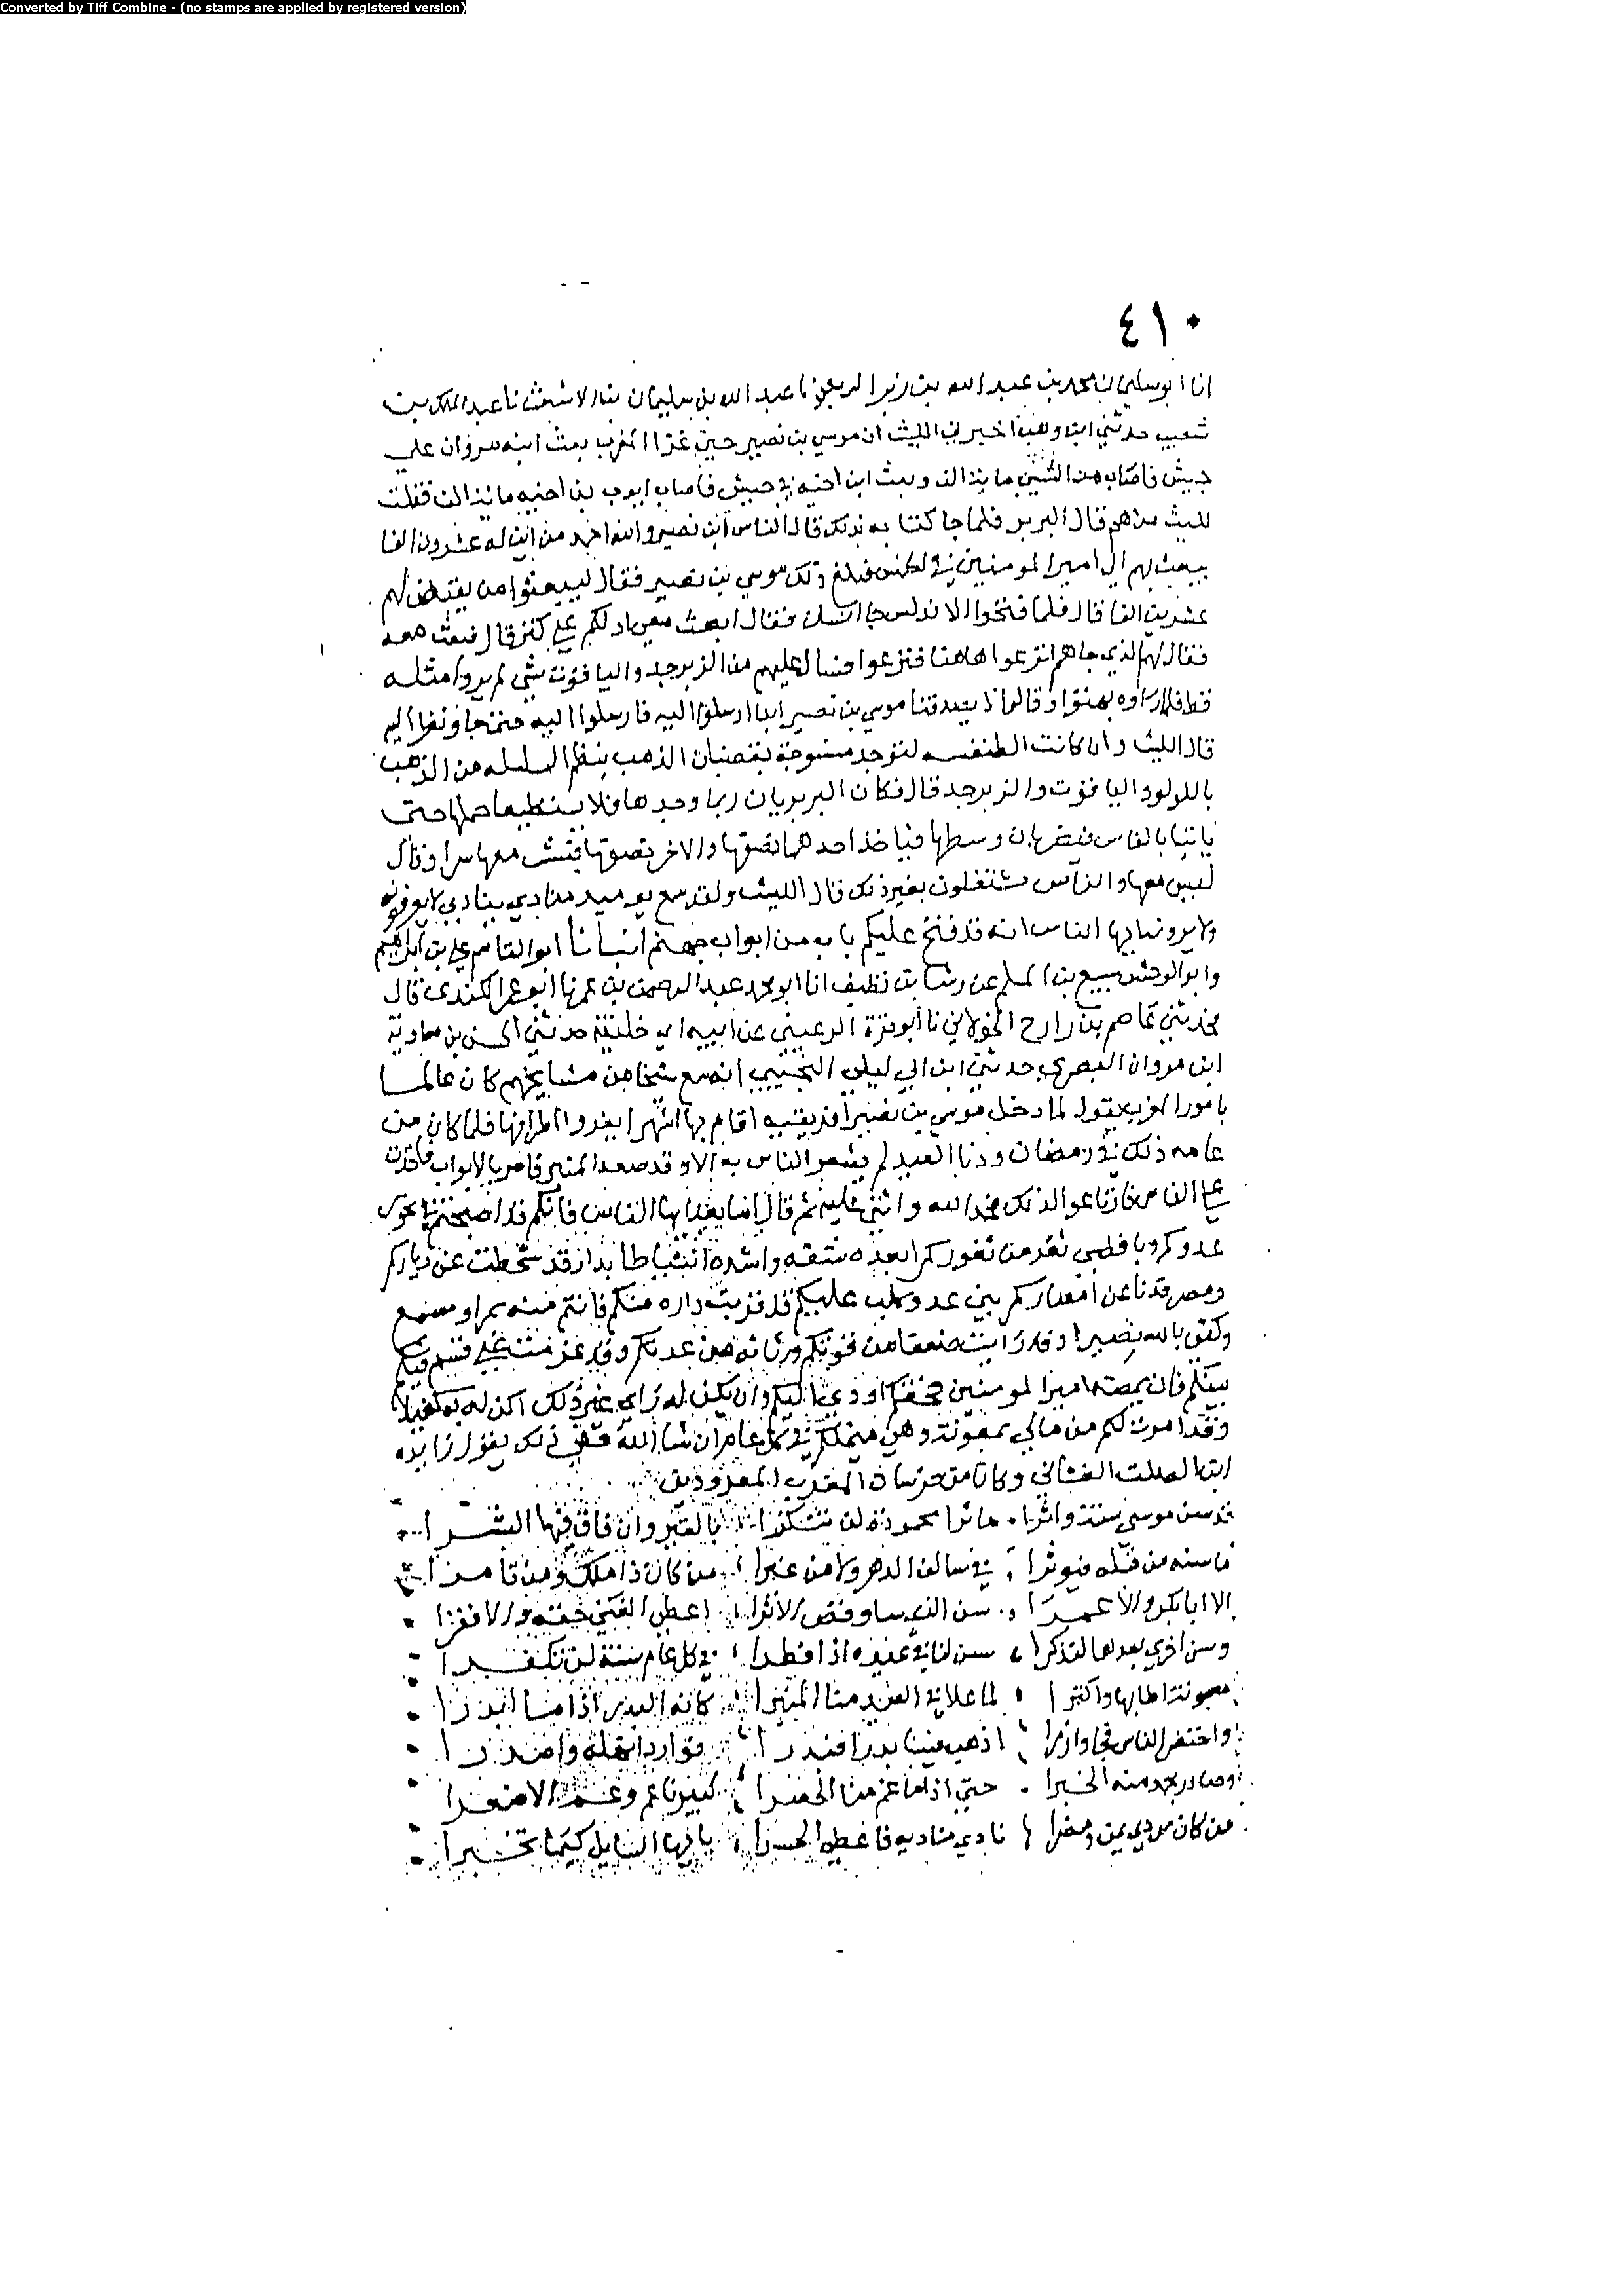 Converted by Tiff Combine - (no stamps are applied by registered version)
٤١٠
انا ابو سليمان محمد بن عبد الله بن زبر الربعي نا عبد الله بن سليمان بن الاشعث نا عبد الملك بن
شعيب حدثني ابن وهب اخبرني الليث ان موسي بن نصير حين غزا المغرب بعث ابنه مروان علي
جيش فاصاب من السبي ماية الف وبعث ابن اخيه في جيش فاصاب ايوب بن اخيه ماية الف فقلت
لليث من هم قال البربر فلما جا كتابه بذلك قال الناس ابن نصير والله احمد من اين له عشرون الفا
يبعث بهم الي امير المومنين في الخمس فبلغ ذلك موسي بن نصير فقال ليبعثوا من يقبض لهم
عشرين الفا قال فلما فتحوا الاندلس جا انسان فقال ابعث معي ادلكم علي كنز قال فبعث معه
فقال لهم الذي جاهم انزعوا هاهنا فنزعوا فسال عليهم من الزبرجد والياقوت شي لم يروا مثله
قط فلما راوه بهتوا وقالوا لا يصدقنا موسي بن نصير ابدا ارسلوا اليه فارسلوا اليه حتي جا ونظر اليه
قال الليث وان كانت الطنفسه لتوجد منسوجة بقضبان الذهب ينظم السلسله من الذهب
باللولو والياقوت والزبرجد قال فكان البربريان ربما وجدها فلا يستطيعا حملها حتي
ياتيا بالفاس فيضربان وسطها فياخذ احدهما نصفها والاخر نصفها
معها والناس مشتغلون بغير ذلك قال الليث ولقد سمع يوميد منادي ينادي لا يعرفونه
ولا يرونه ايها الناس انه قد فتح عليكم باب من ابواب جهنم انبانا ابو القاسم علي بن ابراهيم
وابو الوحش سبيع بن المسلم عن رشا بن نظيف انا ابو محمد عبد الرحمن بن عمر نا ابو عمر الكندي قال
حدثني عاصم بن رازح الخولاني نا ابو قرة الرعيني عن ابيه ابي خليفة حدثني الحسن بن معاوية
ابن مروان البصري حدثني ابن ابي ليلي التجيبي انه سمع شيخا من مشايخهم كان عالما
بامور المغرب يقول لما دخل موسي بن نصير افريقيه اقام بها اشهرا يغزوا اطرافها فلما كان من
عامه ذلك في رمضان ودنا العيد لم يشعر الناس به الا وقد صعد المنبر فامر بالابواب فاخذت
علي الناس فارتاعوا لذلك فحمد الله واثني عليه ثم قال اما بعد ايها الناس فانكم قد اصبحتم في نحور
عدوكم وباقصي ثغر من ثغوركم ابعده شقه واشده بدار قد شحطت عن دياركم
ومصر قد نا عن امصاركم بين عدو كلب عليكم قد قربت داره منكم فانتم منه بمراي ومسمع
وكفي بالله نصيرا وقد رايت ضعفا من قوتكم ورثاثه من عدتكم وقد عزمت علي قسم فيكم
بينكم فان يمضه امير المومنين اودي اليكم وان يكن له راي غير ذلك اكن له به كفيلا
وقد امرت لكم من مالي بمعونة وهي منحلكم في كل عام ان شا الله ففي ذلك يقول زايده
ابن الصلت الغساني وكان من فرسان المغرب المعدودين
قد سن موسي سنة واثرا ماثرا محمودة لن تنكرا بالقيروان فاق فيها البشرا
ما سنه من قبله فيوثرا في سالف الدهر ولا من غبرا من كان ذا ملك ومن تامرا
الا ابابكر والا عمرا سن الذي ساد وقص الاثرا اعطي الغني حقه والافقرا
وسن اخري بعدها لتذكرا سن لنا في عيده اذ افطرا في كل عام سنة لن تكفرا
معونة اطابها واكثرا لما علا في العيد منا المنبرا كانه البدر اذا ما ابدرا
واحتضر الناس فجاوا زمرا اذهب فينا بدرا فبدرا
وصادر يحمد منه الخبرا حتي اذا ما عم منا الحضرا كبيرنا عم وعم الاصغرا
من كان من ذي يمن ومضرا نادي مناديه فاعطي الحسرا يا ايها السايل كيما تخبرا